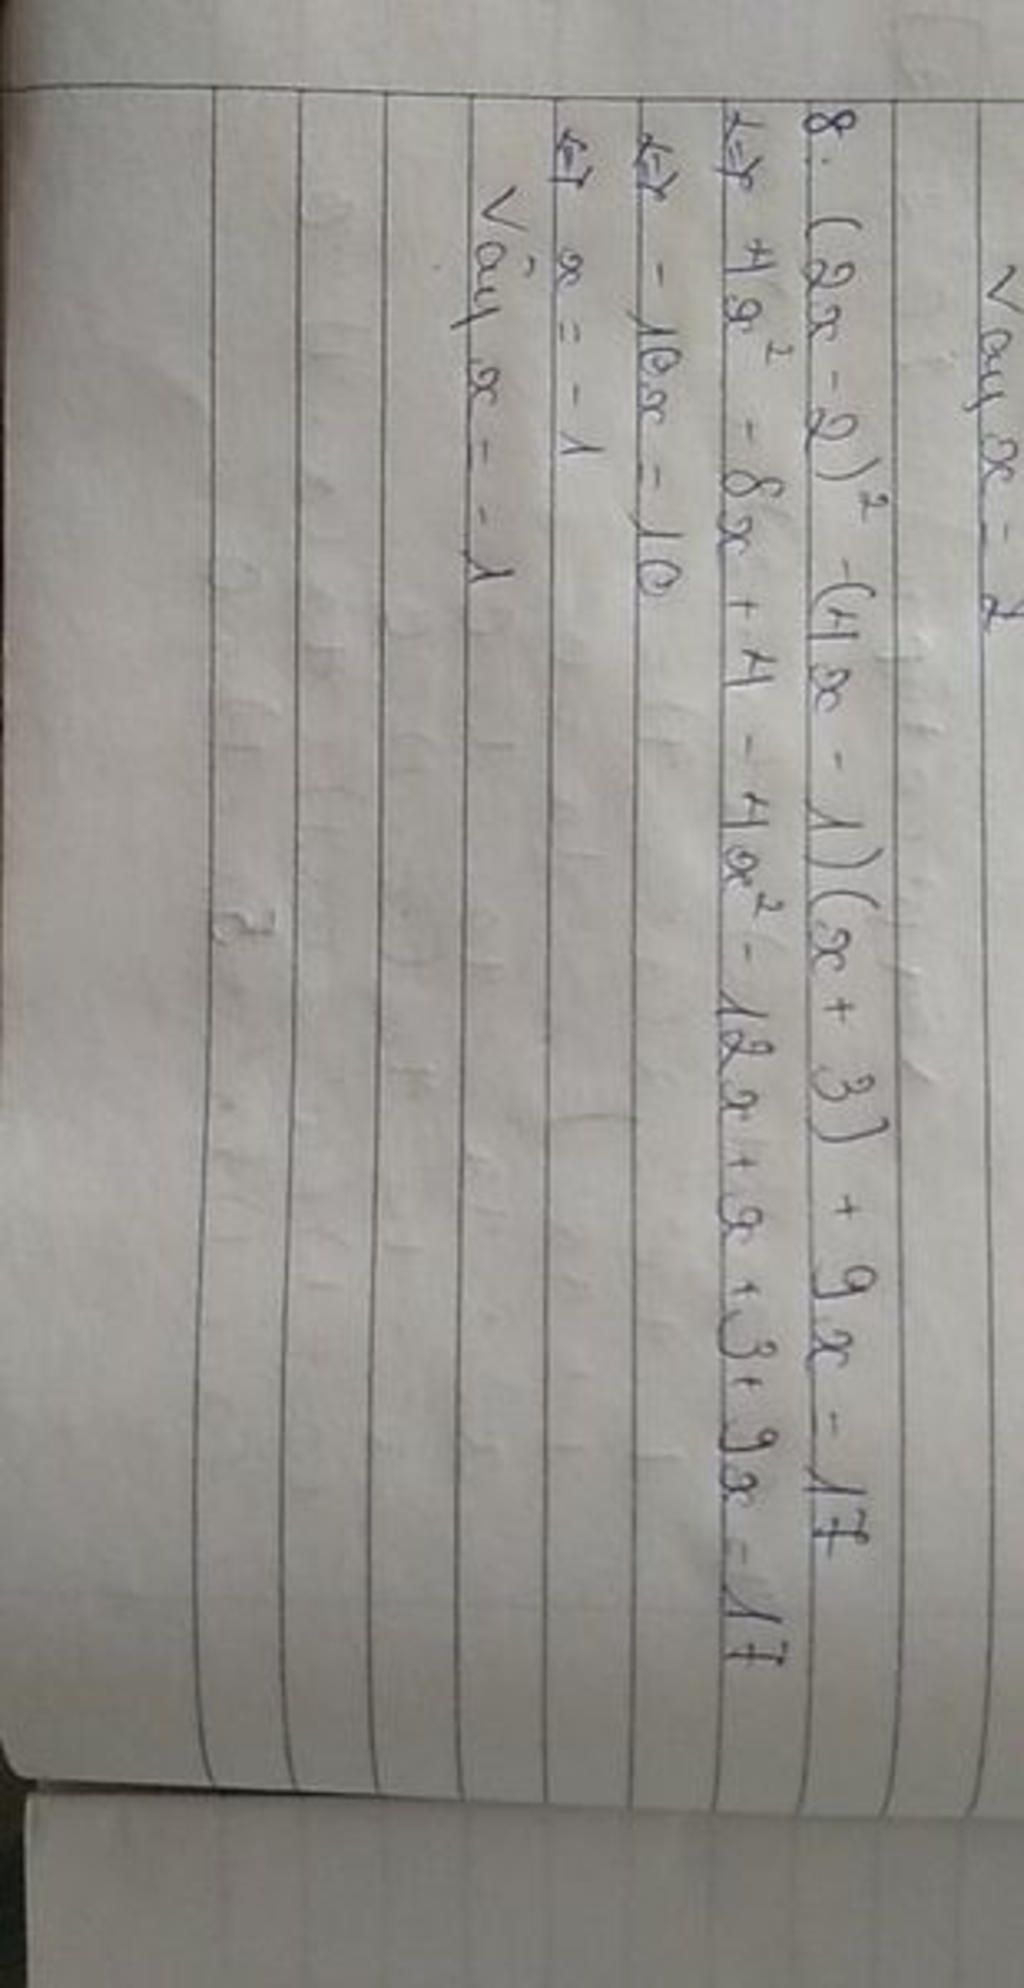 Vay x = 2
8. (2x - 2)² - (4x - 1)(x + 3) + 9x - 17
<=> 4x² - 8x + 4 - 4x² - 12x + x + 3 + 9x - 17
<=> - 10x = 10
<=> x = - 1
Vây x = - 1